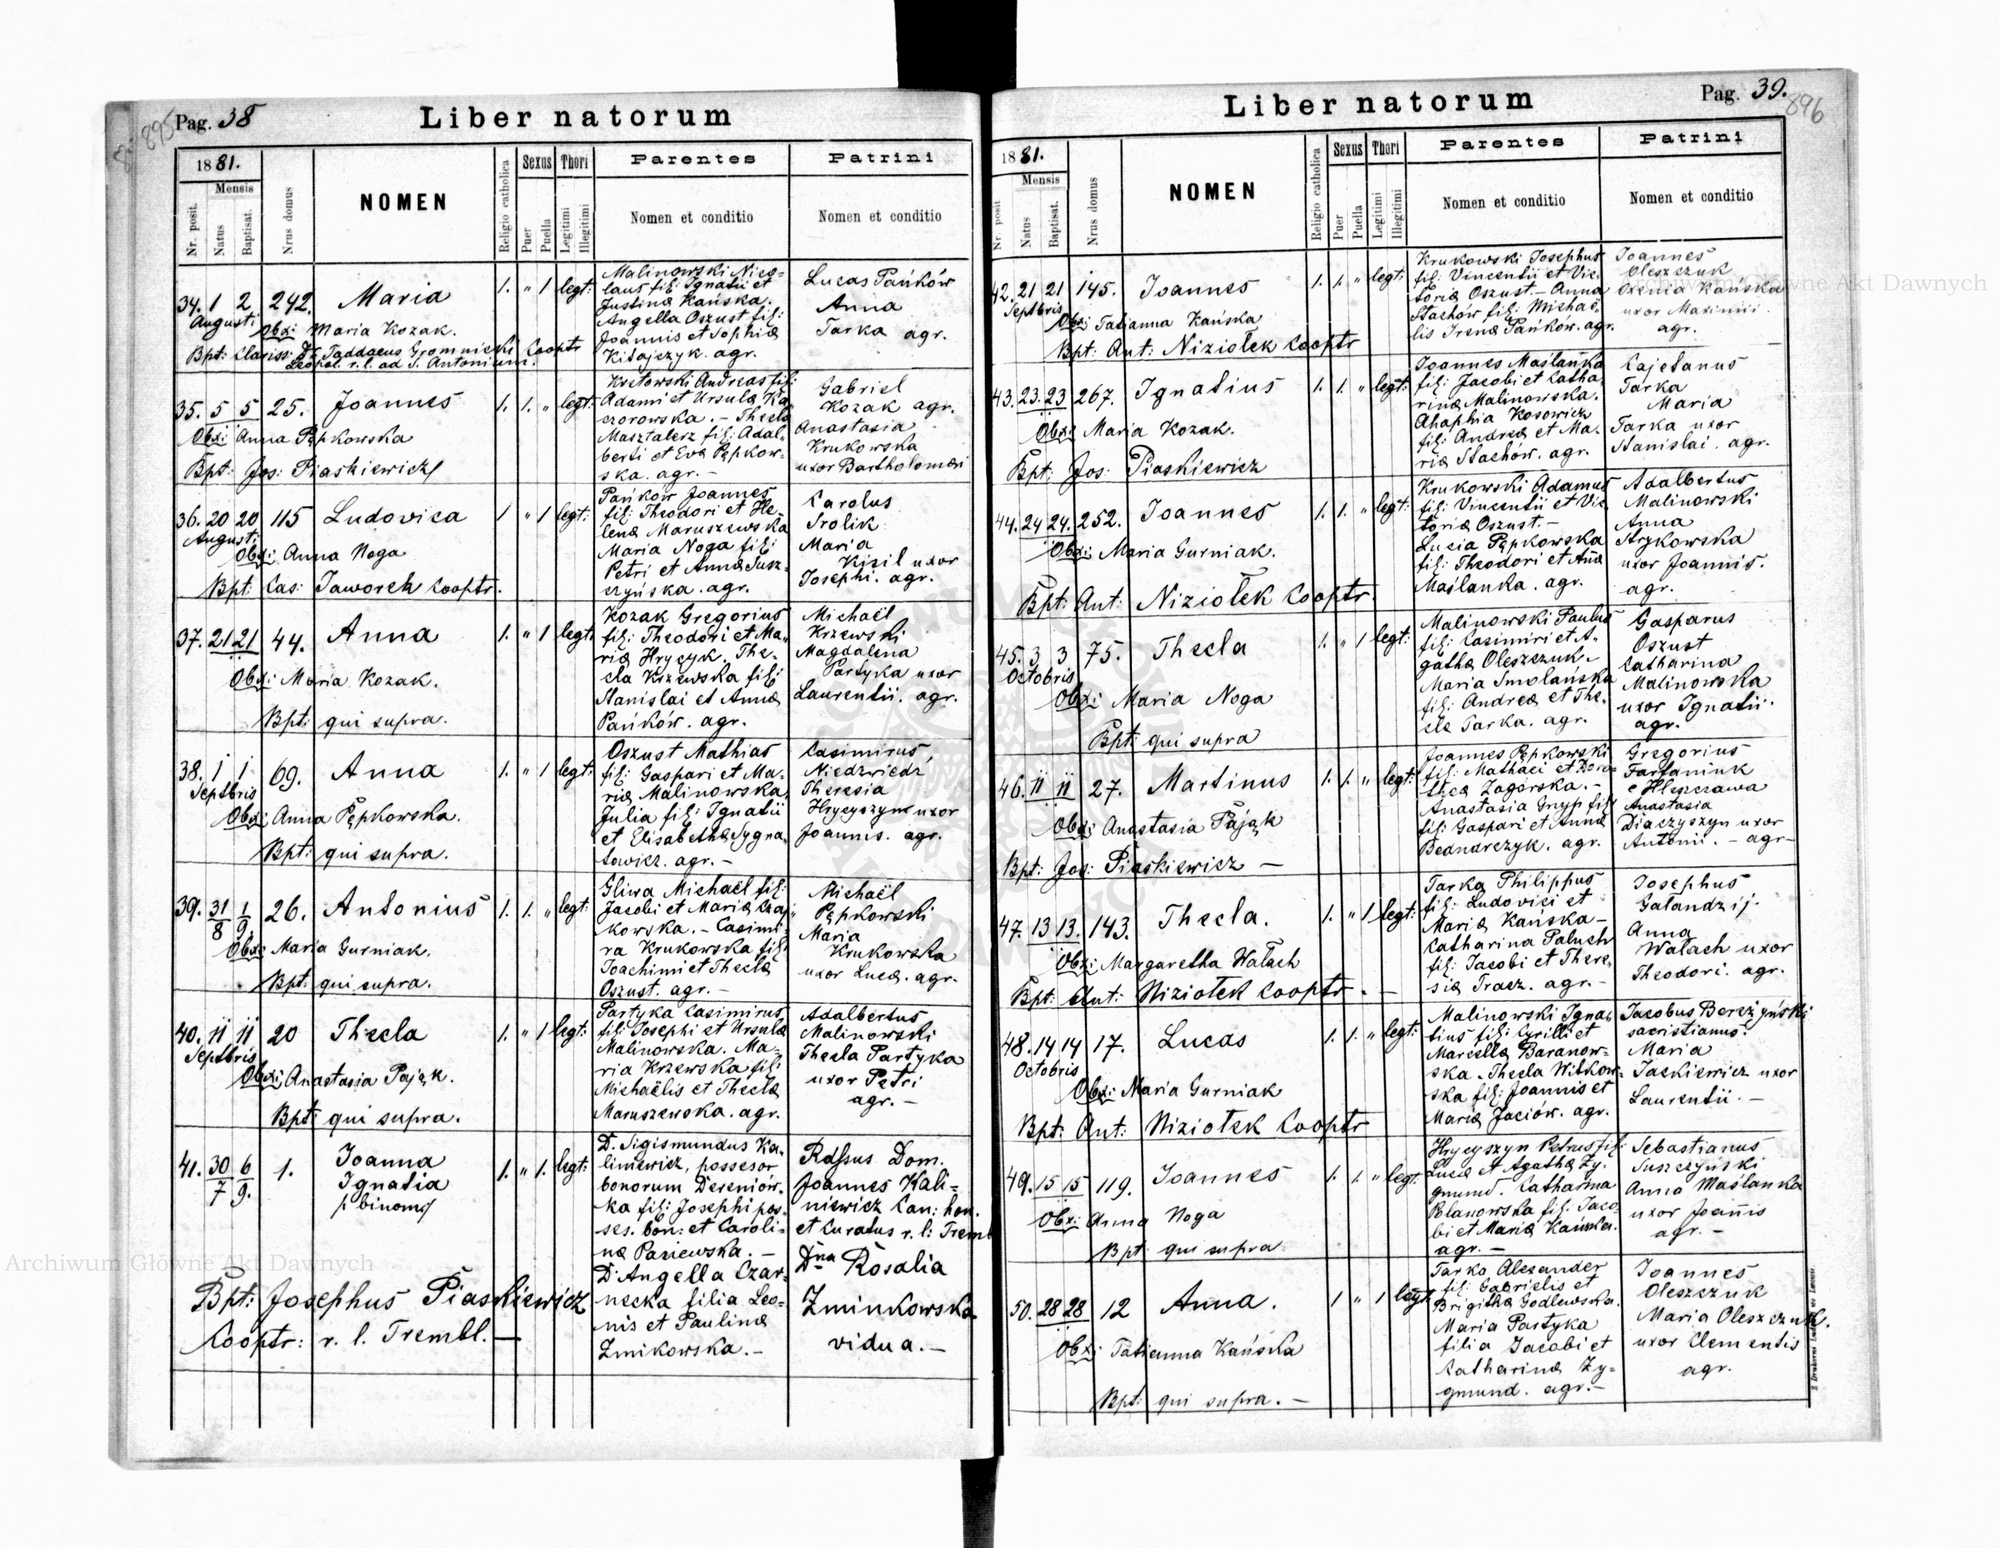 Pag. 38
895
Liber natorum
1881.
Mensis
Nr. posit.
Natus
Baptisat.
Nrus domus
NOMEN
Religio catholica
Sexus
Puer
Puella
Thori
Legitimi
Illegitimi
Parentes
Nomen et conditio
Patrini
Nomen et conditio
34. 1 2 242. Maria 1. " 1 legt:
Augusti
Obx: Maria Kozak.
Bpt: Clariss: Dr Taddaeus Gromnicki Cooptr
Leopol. r. l. ad S. Antonium.
Malinowski Nico-
laus fil: Ignatii et
Justina Kańska.
Angella Oszust fil:
Joannis et Sophia
Kitajczyk. agr.
Lucas Pańków
Anna
Tarka agr.
35. 5 5 25. Joannes 1. 1. " legt:
Obx: Anna Pępkowska
Bpt: Jos: Piaskiewicz
Kretowski Andreas fil:
Adami et Ursula Ka-
czorowska. - Thecla
Masztalerz fil: Adal-
berti et Eva Pępkow-
ska. agr. -
Gabriel
Kozak agr.
Anastasia
Krukowska
uxor Bartholomæi
36. 20 20 115 Ludovica 1 " 1 legt:
Augusti
Obx: Anna Noga
Bpt: Cas: Jaworek Cooptr.
Pańkow Joannes
fil: Theodori et He-
lena Maruszewska
Maria Noga fil:
Petri et Anna Susz-
czyńska. agr.
Carolus
Srolik
Maria
Kisil uxor
Josephi. agr.
37. 21 21 44. Anna 1. " 1 legt:
Obx: Maria Kozak.
Bpt: qui supra.
Kozak Gregorius
fil: Theodori et Ma-
ria Hrycyk. The-
cla Krzewska fil:
Stanislai et Anna
Pańków. agr.
Michaël
Krzewski
Magdalena
Partyka uxor
Laurentii. agr.
38. 1 1 69. Anna 1. " 1 legt:
Septbris
Obx: Anna Pępkowska.
Bpt: qui supra.
Oszust Mathias
fil: Gaspari et Ma-
ria Malinowska.
Julia fil: Ignatii
et Elisabetha Sygna-
towicz. agr. -
Casimirus
Niedzwiedz
Theresia
Hrycyszyn uxor
Joannis. agr.
39. 31/8 1/9. 26. Antonius 1. 1. " legt:
Obx: Maria Gurniak.
Bpt: qui supra.
Gliwa Michaël fil:
Jacobi et Maria Czaj-
kowska. - Casimi-
ra Krukowska fil:
Joachimi et Thecla
Oszust. agr. -
Michaël
Pępkowski
Maria
Krukowska
uxor Luca. agr.
40. 11 11 20 Thecla 1. " 1 legt:
Septbris
Obx: Anastasia Pająk.
Bpt: qui supra.
Partyka Casimirus
fil: Josephi et Ursula
Malinowska. Ma-
ria Krzewska fil:
Michaëlis et Thecla
Maruszewska. agr.
Adalbertus
Malinowski
Thecla Partyka
uxor Petri
agr. -
41. 30/7 6/9. 1. Joanna 1. " 1. legt:
Ignatia
binomis
Bpt: Josephus Piaskiewicz
Cooptr: r. l. Trembl. -
D. Sigismundus Ka-
liniewicz, possesor
bonorum Dereniów-
ka fil: Josephi pos-
ses. bon: et Caroli-
na Paziewska. -
D. Angella Czar-
necka filia Leo-
nis et Paulina
Zmikowska. -
Rdssus Dom.
Joannes Kali-
niewicz Can: hon.
et Curatus r. l: Trembl
Dna Rosalia
Zminkowska
vidua. -
Pag. 39.
896
Liber natorum
1881.
Mensis
Nr. posit
Natus
Baptisat.
Nrus domus
NOMEN
Religio catholica
Sexus
Puer
Puella
Thori
Legitimi
Illegitimi
Parentes
Nomen et conditio
Patrini
Nomen et conditio
42. 21 21 145. Joannes 1. 1. " legt:
Septbris
Obx: Tatianna Kańska
Bpt: Ant: Niziołek Cooptr
Krukowski Josephus
fil: Vincentii et Vic-
toria Oszust. - Anna
Stachów fil: Michaë-
lis Irena Pańkow. agr.
Joannes
Oleszczuk
Oxenia Kańska
uxor Maximii.
agr.
43. 23. 23 267. Ignatius 1. 1. " legt:
Obx: Maria Kozak.
Bpt: Jos: Piaskiewicz
Joannes Maślanka
fil: Jacobi et Catha-
rina Malinowska.
Ahaphia Kosowicz
fil: Andrea et Ma-
ria Stachów. agr.
Cajetanus
Tarka
Maria
Tarka uxor
Stanislai. agr.
44. 24 24. 252. Joannes 1. 1. " legt:
Obx: Maria Gurniak.
Bpt: Ant: Niziołek Cooptr.
Krukowski Adamus
fil: Vincentii et Vic-
toria Oszust. -
Lucia Pępkowska
fil: Theodori et Ana
Maślanka. agr.
Adalbertus
Malinowski
Anna
Strykowska
uxor Joannis.
agr.
45. 3 3 75. Thecla 1. " 1 legt:
Octobris
Obx: Maria Noga
Bpt: qui supra
Malinowski Paulus
fil: Casimiri et A-
gatha Oleszczuk.
Maria Smolańska
fil: Andrea et The-
cla Tarka. agr.
Gasparus
Oszust
Catharina
Malinowska
uxor Ignatii.
agr.
46. 11 11 27. Martinus 1. 1. " legt:
Obx: Anastasia Pająk
Bpt: Jos: Piaskiewicz -
Joannes Pępkowski
fil: Mathaei et Doro-
thea Zagórska. -
Anastasia Gnyp fil:
fil: Gaspari et Anna
Bednarczyk. agr.
Gregorius
Farfaniuk
e Hleszczawa
Anastasia
Diaczyszyn uxor
Antonii. - agr -
47. 13 13. 143. Thecla. 1. " 1 legt:
Obx: Margaretha Wałach
Bpt: Ant: Niziołek Cooptr. -
Tarka Philippus
fil: Ludovici et
Maria Kańska -
Catharina Paluch
fil: Jacobi et There-
sia Tracz. agr. -
Josephus
Galandzij.
Anna
Wałach uxor
Theodori. agr.
48. 14 14 17. Lucas 1. 1. " legt:
Octobris
Obx: Maria Gurniak
Bpt: Ant: Niziołek Cooptr
Malinowski Igna-
tius fil: Cyrilli et
Marcella Baranow-
ska. Thecla Witkow-
ska fil: Joannis et
Maria Jaciów. agr.
Jacobus Bereżyński
sacristianus.
Maria
Jaskiewicz uxor
Laurentii. -
49. 15 15 119. Joannes 1. 1. " legt:
Obx: Anna Noga
Bpt: qui supra
Hrycyszyn Petrus fil:
Luca et Agatha Zy-
gmund. Catharina
Polanowska fil: Jaco-
bi et Maria Kańska.
agr. -
Sebastianus
Suszczyński
Anna Maślanka
uxor Joannis
agr. -
50. 28 28 12 Anna. 1 " 1 legt:
Obx: Tatianna Kańska
Bpt: qui supra. -
Tarko Alexander
fil: Gabrielis et
Brigitha Godlewska.
Maria Partyka
filia Jacobi et
Catharina Zy-
gmund. agr. -
Joannes
Oleszczuk
Maria Oleszczuk.
uxor Clementis
agr.
Archiwum Główne Akt Dawnych
Archiwum Główne Akt Dawnych